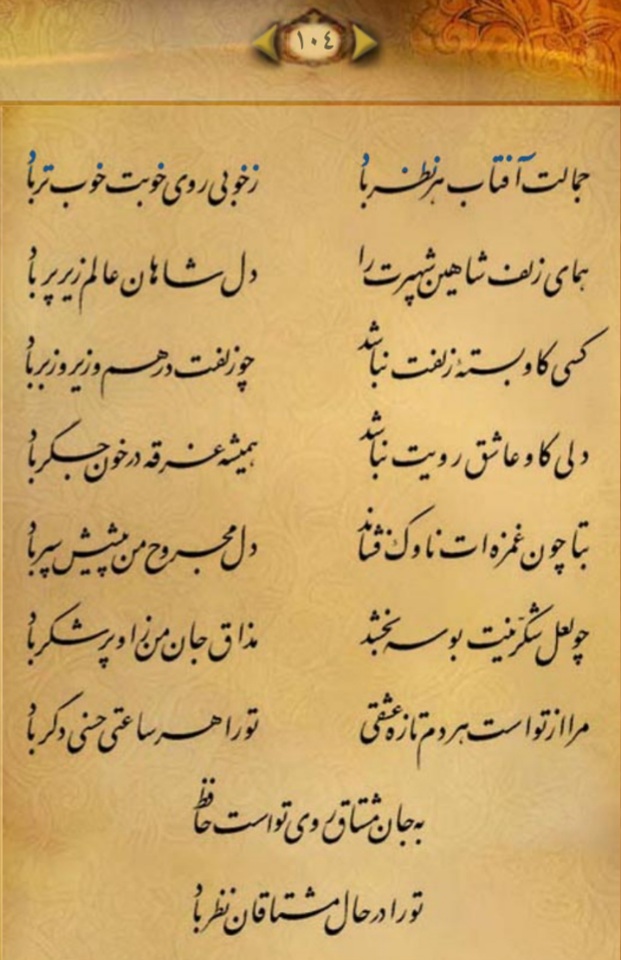 ١٠٤
جمالت آفتاب هر نظر باد    ز خوبی روی خوبت خوب تر باد
همای زلف شاهین شهپرت را    دل شاهان عالم زیر پر باد
کسی کاو بستهٔ زلفت نباشد    چو زلفت درهم و زیر و زبر باد
دلی کاو عاشق رویت نباشد    همیشه غرقه در خون جگر باد
بتا چون غمزه ات ناوک فشاند    دل مجروح من پیشش سپر باد
چو لعل شکرّینت بوسه بخشد    مذاق جان من زاو پرشکر باد
مرا از تو است هر دم تازه عشقی    تو را هر ساعتی حسنی دگر باد
به جان مشتاق روی تو است حافظ
تو را در حال مشتاقان نظر باد